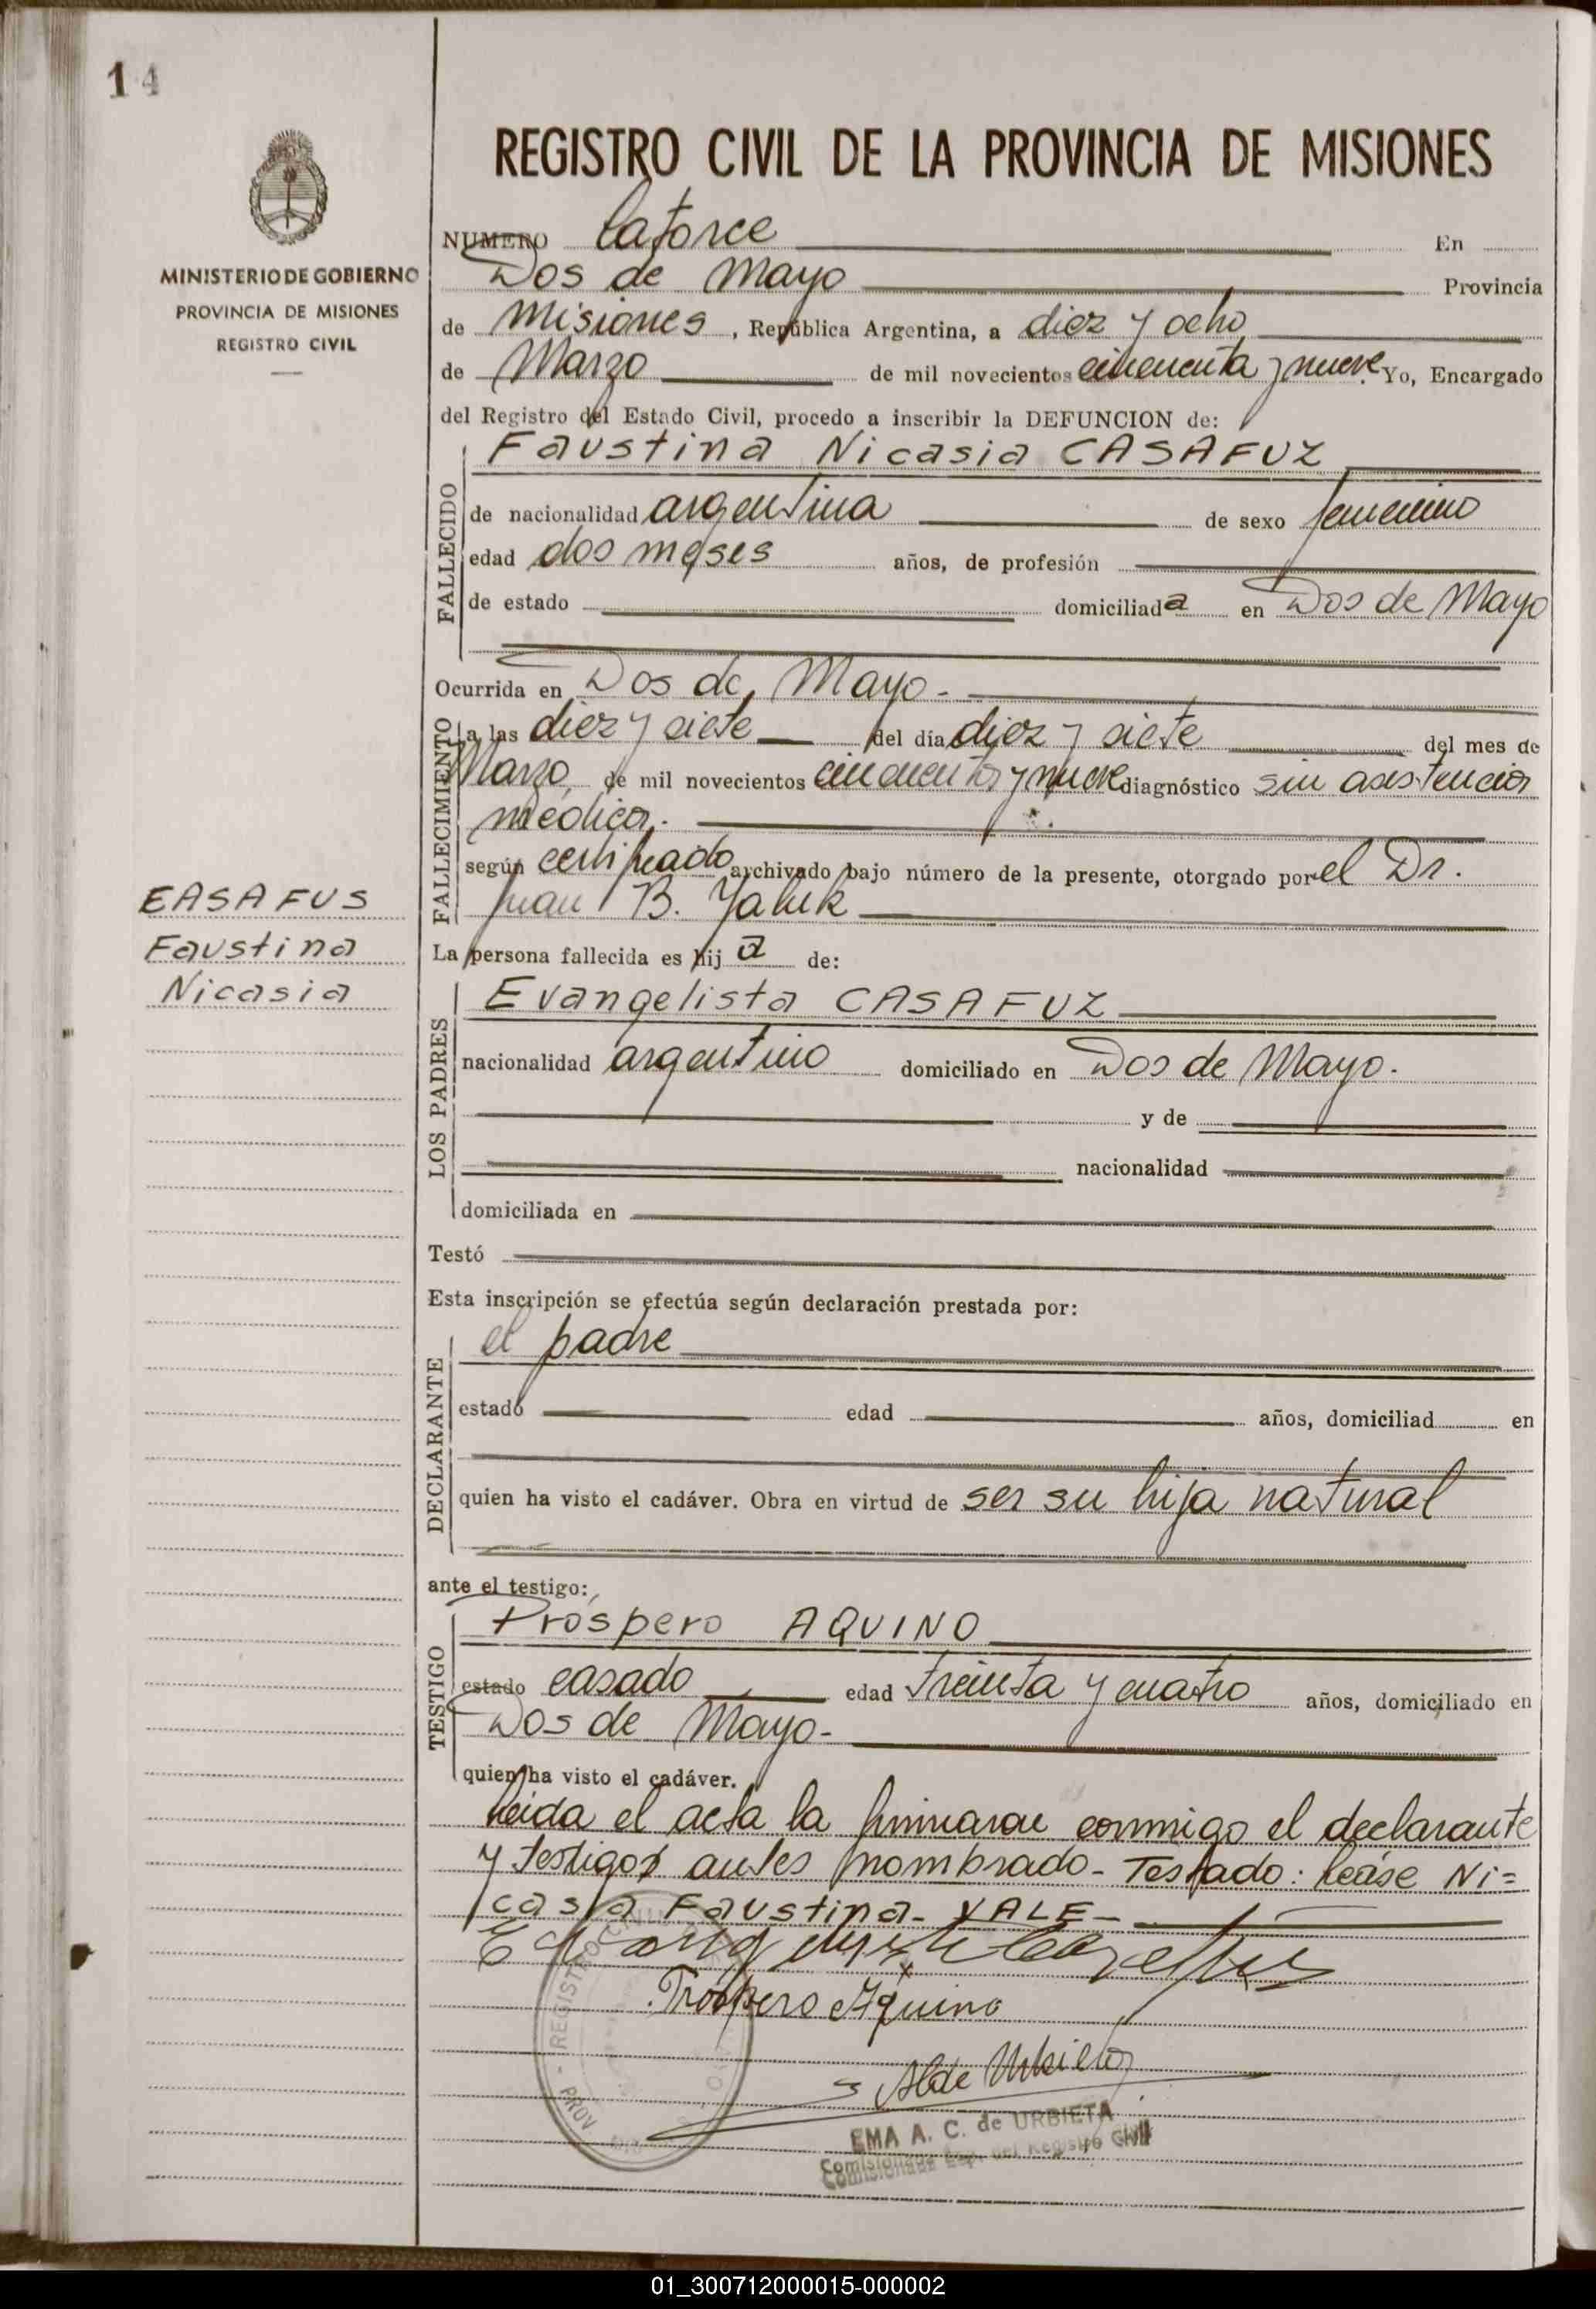 14
MINISTERIO DE GOBIERNO
PROVINCIA DE MISIONES
REGISTRO CIVIL
EASAFUS
Faustina
Nicasia
REGISTRO CIVIL DE LA PROVINCIA DE MISIONES
NUMERO Catorce En
Dos de Mayo Provincia
de Misiones, República Argentina, a diez y ocho
de Marzo de mil novecientos cincuenta y nueve. Yo, Encargado
del Registro del Estado Civil, procedo a inscribir la DEFUNCION de:
FALLECIDO
Faustina Nicasia CASAFUZ
de nacionalidad argentina de sexo femenino
edad dos meses años, de profesión
de estado domiciliada en Dos de Mayo
FALLECIMIENTO
Ocurrida en Dos de Mayo.-
a las diez y siete del día diez y siete del mes de
Marzo, de mil novecientos cincuenta y nueve diagnóstico sin asistencia
médica.-
según certificado archivado bajo número de la presente, otorgado por el Dr.
Juan B.
La persona fallecida es hija de:
LOS PADRES
Evangelista CASAFUZ
nacionalidad argentino domiciliado en Dos de Mayo.
y de
nacionalidad
domiciliada en
Testó
Esta inscripción se efectúa según declaración prestada por:
DECLARANTE
el padre
estado edad años, domiciliad en
quien ha visto el cadáver. Obra en virtud de ser su hija natural
ante el testigo:
TESTIGO
Próspero AQUINO
estado casado edad treinta y cuatro años, domiciliado en
Dos de Mayo.-
quien ha visto el cadáver.
Leida el acta la firmaran conmigo el declarante
y testigos antes nombrado- Testado: leáse Ni=
casia Faustina- VALE-
Próspero Aquino
REGISTRO CIVIL
PROV
EMA A. C. de URBIETA
Comisionada Esp. del Registro Civil
01_300712000015-000002